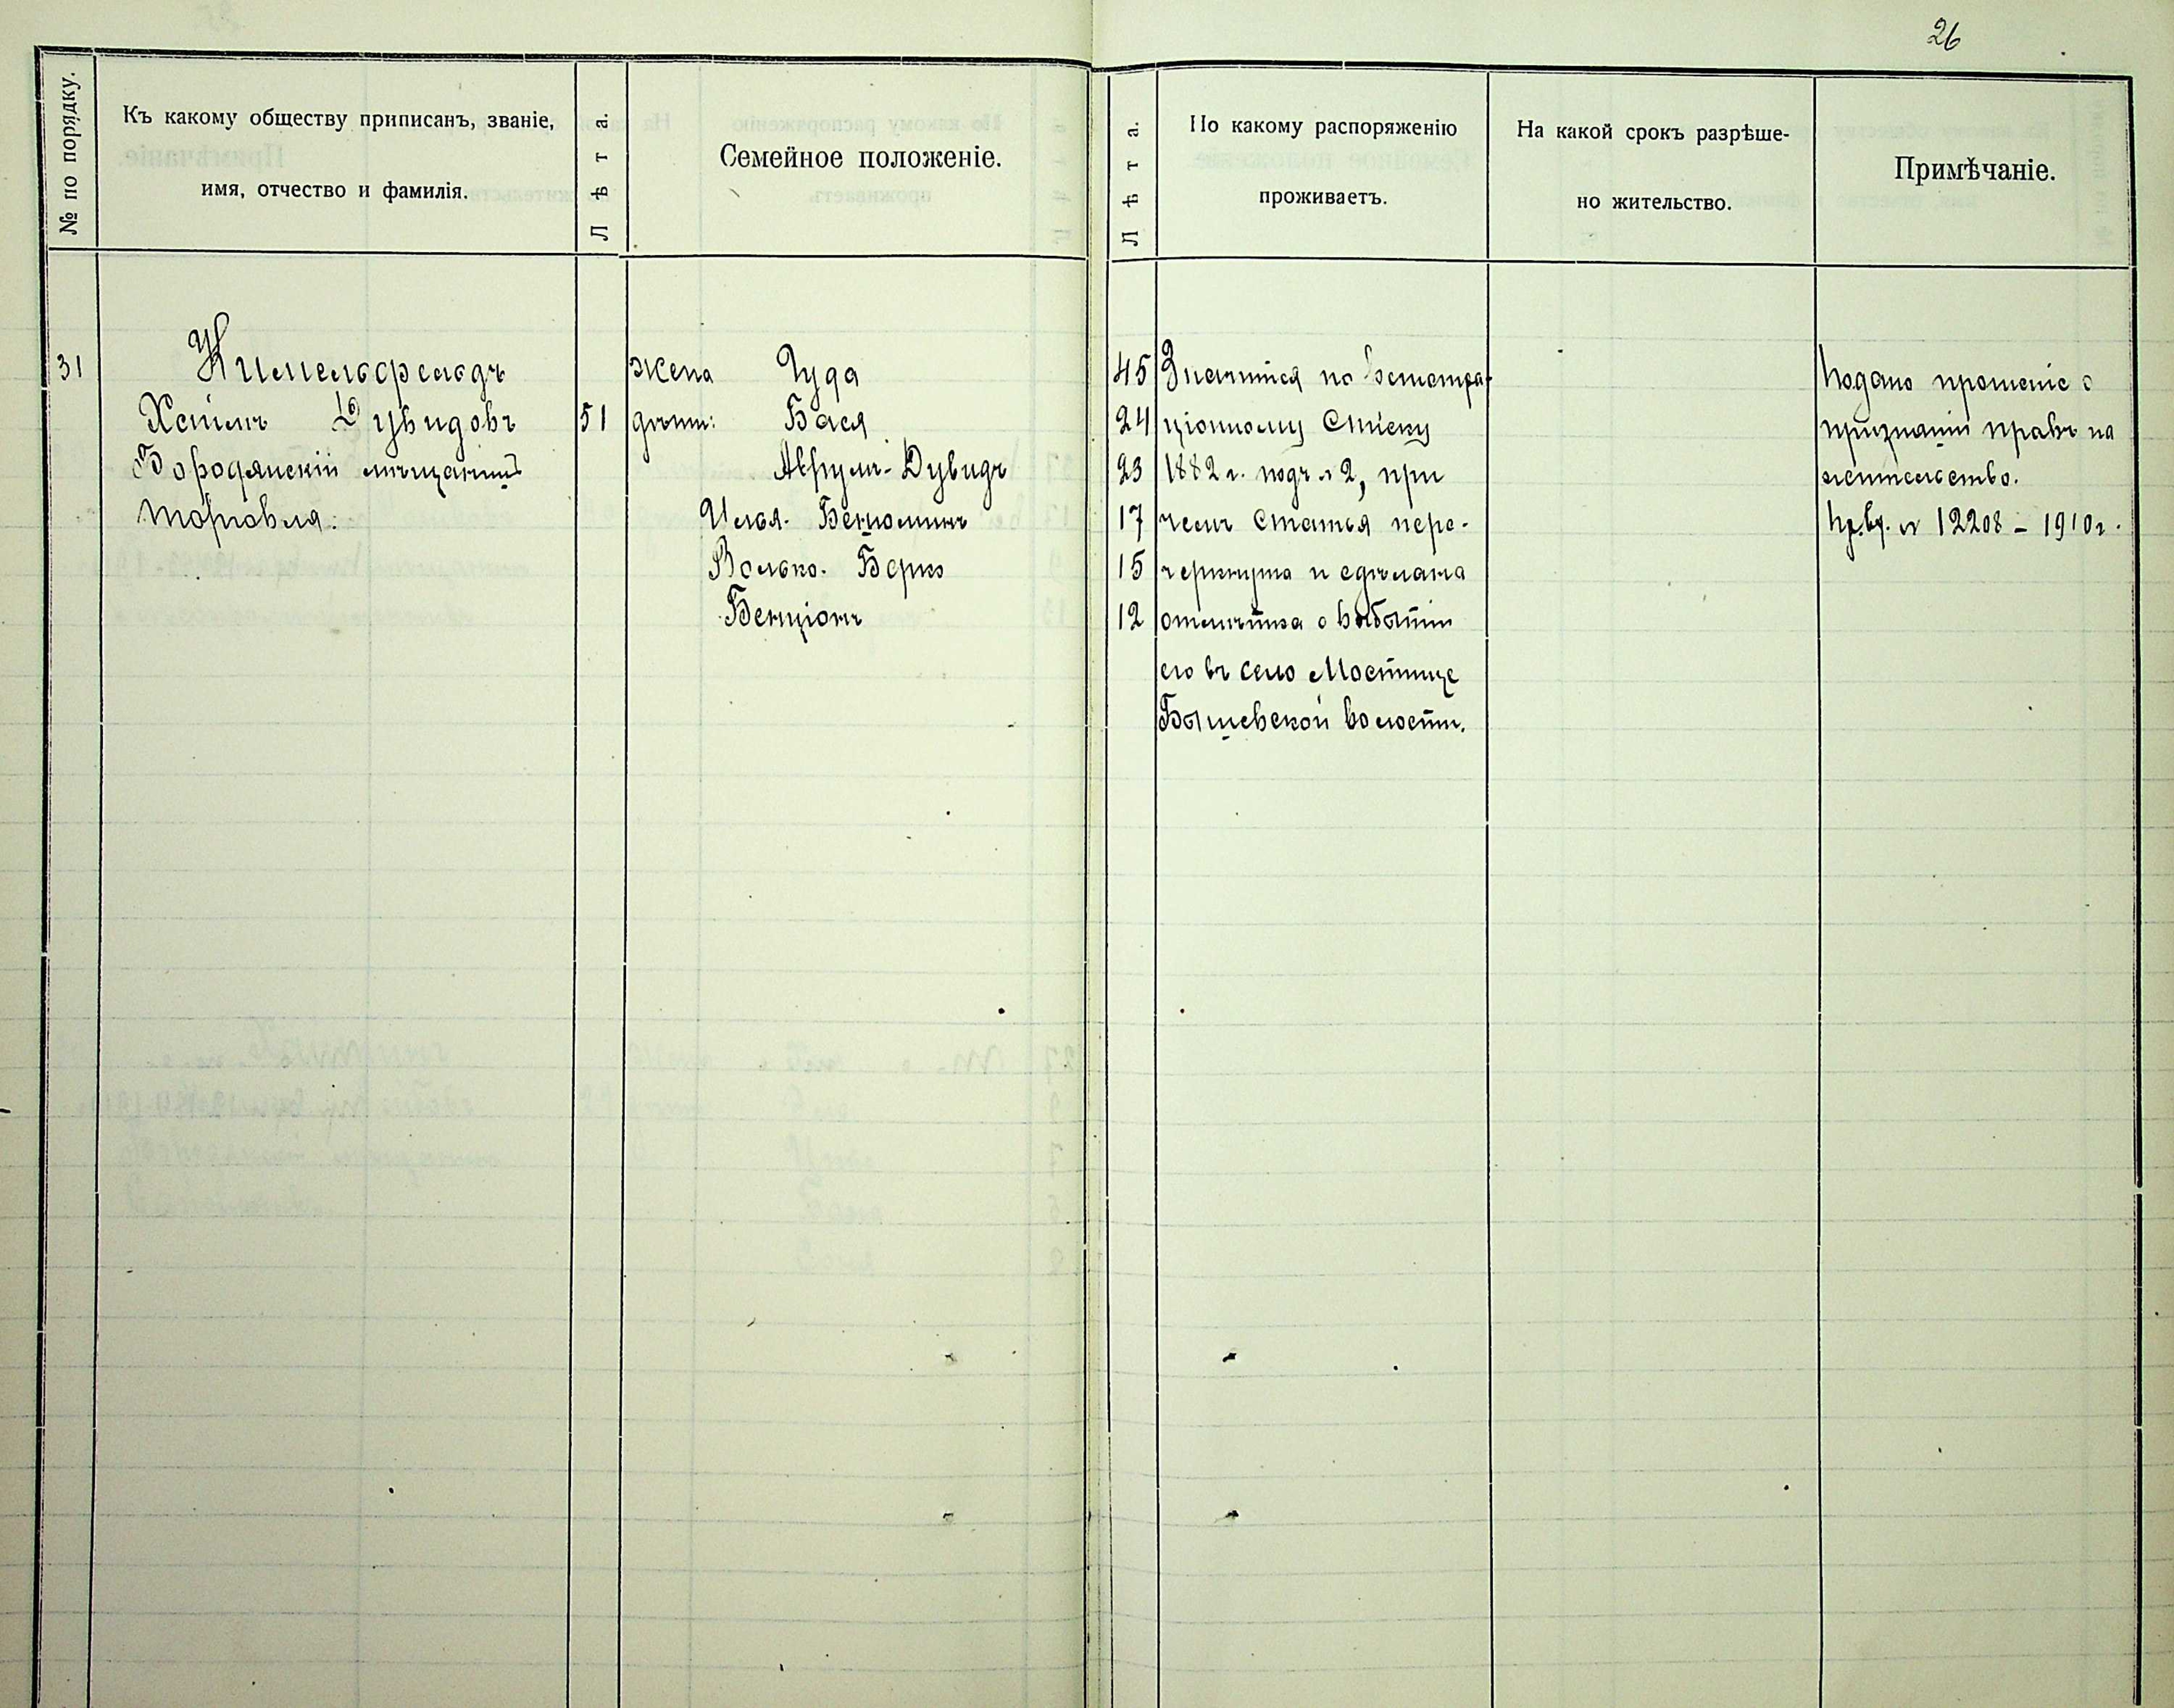 26
№ по порядку.
Къ какому обществу приписанъ, званіе,
имя, отчество и фамилія.
Лѣта.
Семейное положеніе.
Лѣта.
По какому распоряженію
проживаетъ.
На какой срокъ разрѣше-
но жительство.
Примѣчаніе.
31
Химельфельдъ
Хаимъ Дувидовъ
Бородянскій мѣщанинъ
торговля.
51
жена Чуда
дѣти: Бася
Аврумъ-Дувидъ
Илья-Беньоминъ
Волько-Берко
Бенціонъ
45
24
23
17
15
12
Значится по
ціонному списку
1882 г. подъ № 2, при
чемъ статья пере-
черкнута и сдѣлана
отмѣтка о выбытіи
его въ село Мостище
Бышевской волости.
Подано прошеніе о
признаніи правъ на
жительство.
№ 12208 – 1910 г.